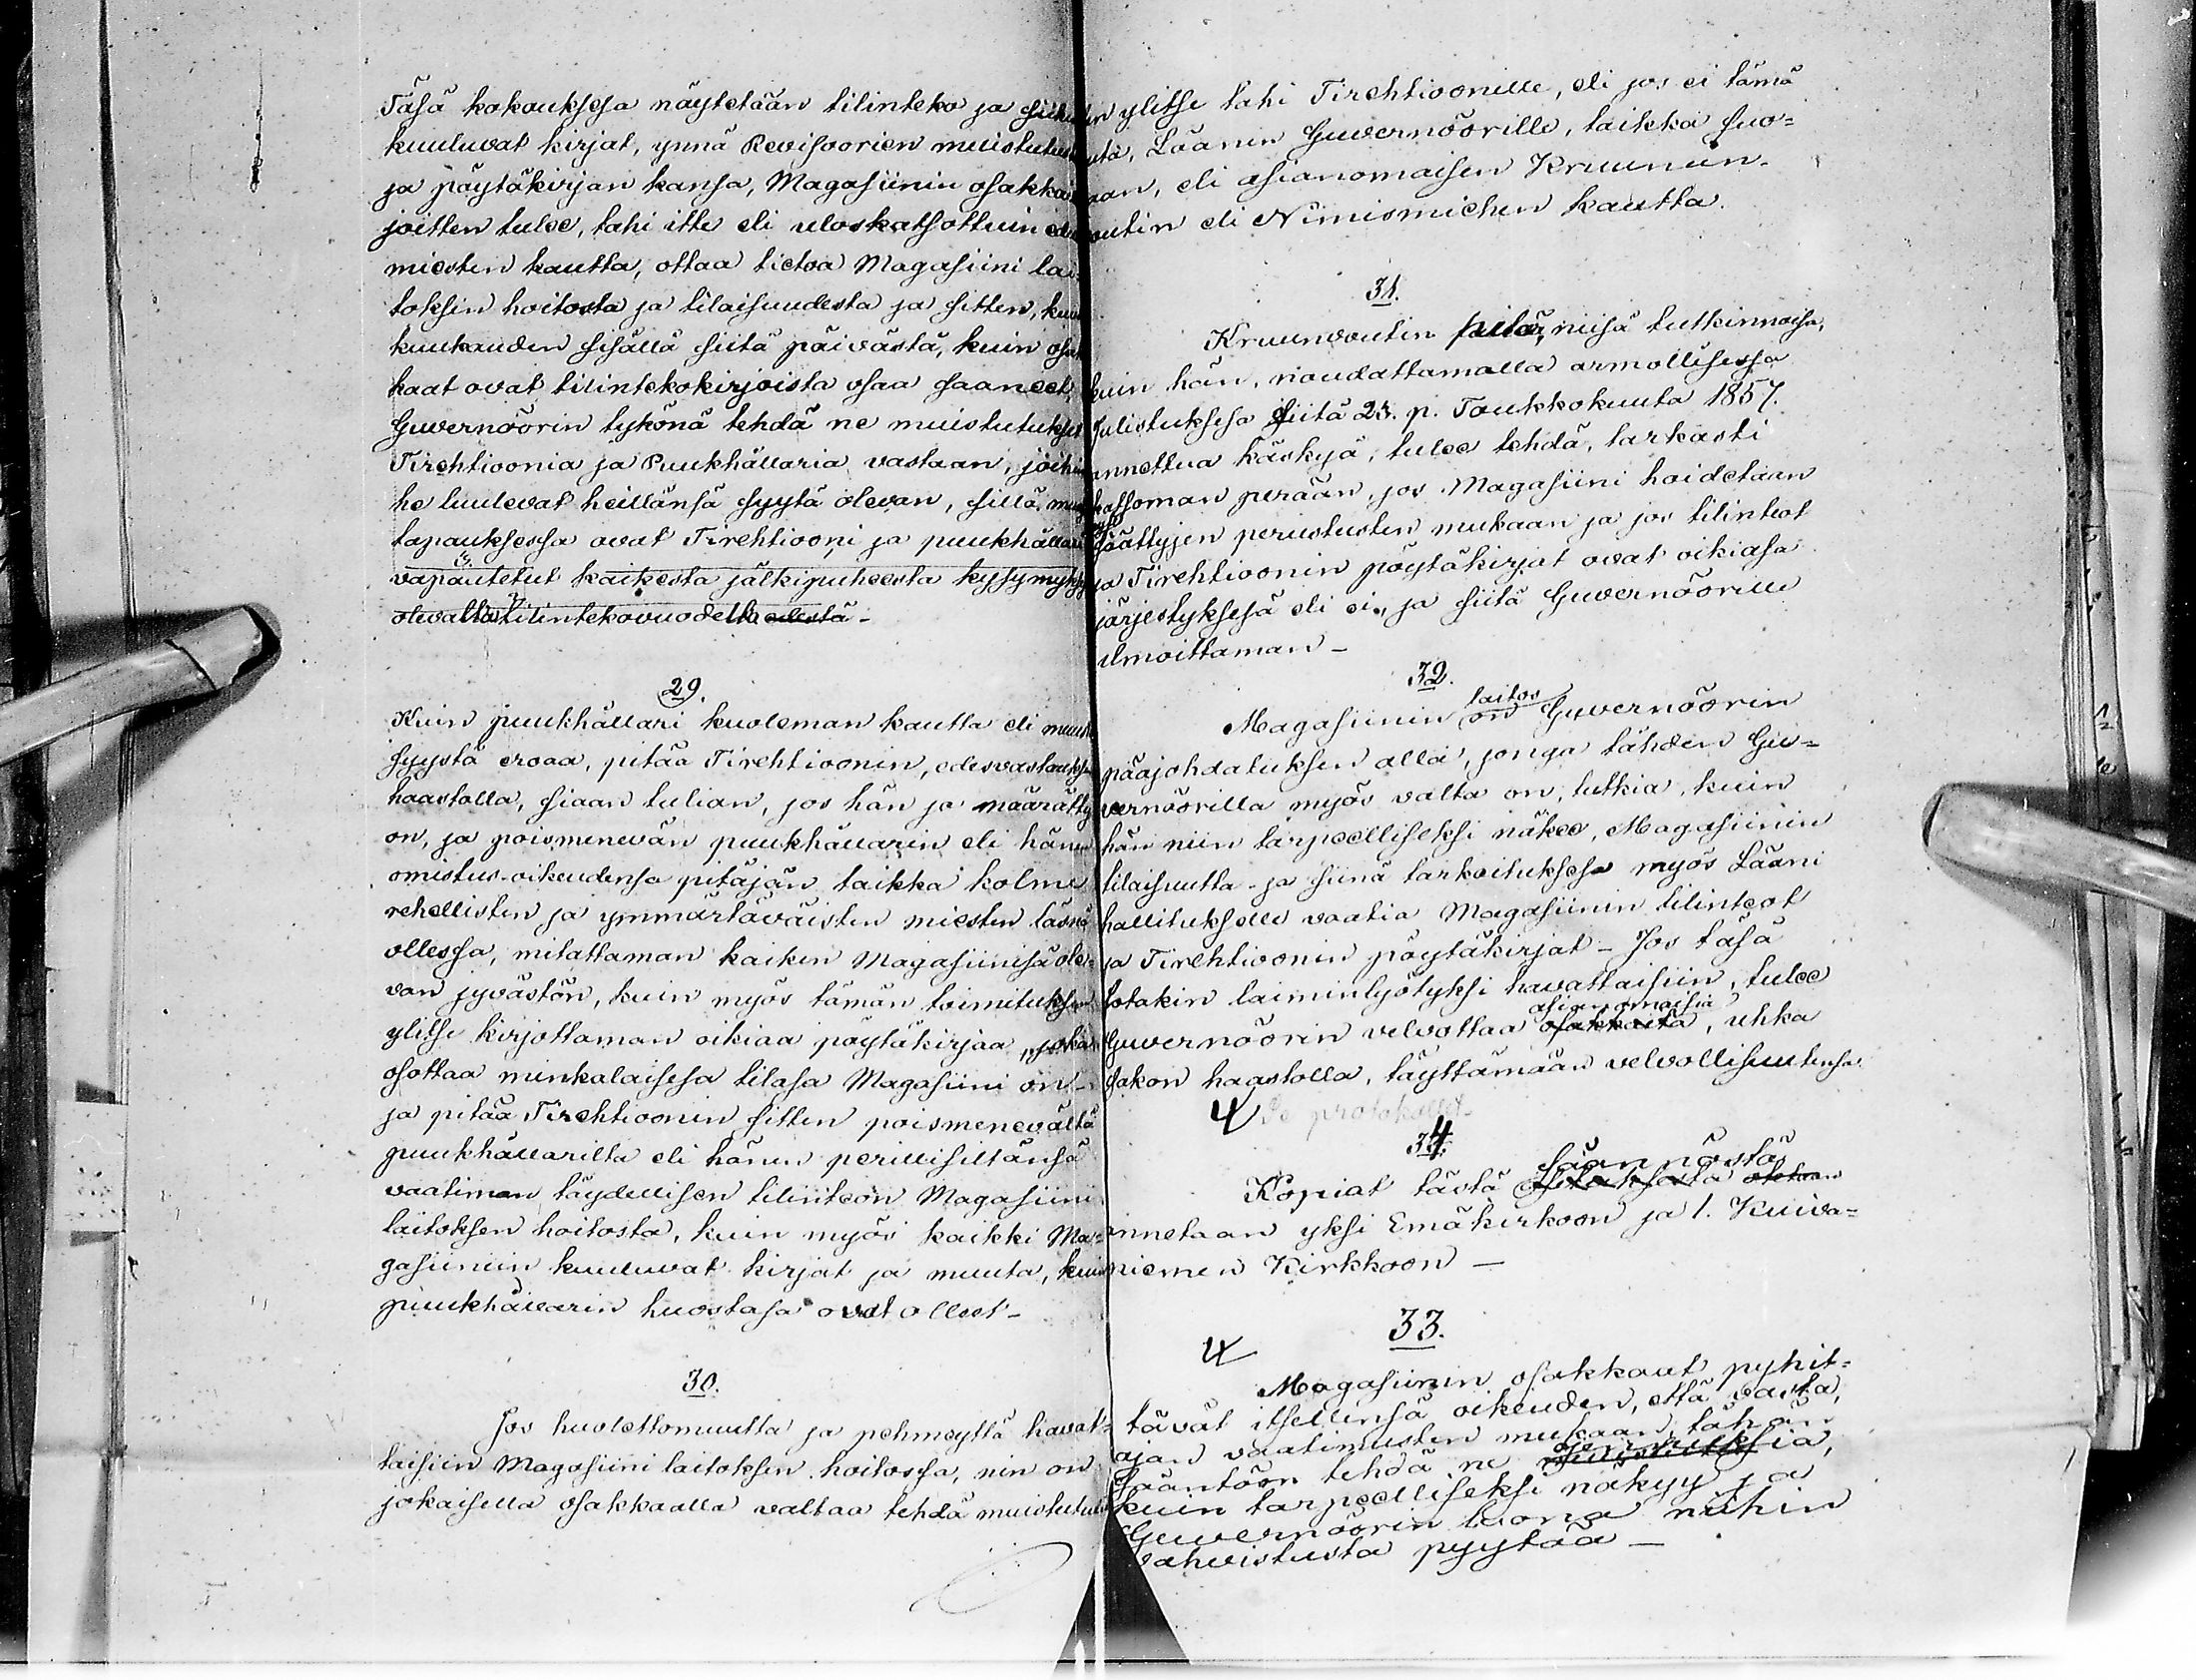 Täsä kokouksesa näytetään tilinteko ja siihen
kuuluvat kirjat, ynnä Revisoorien muistutusten
ja pöytäkirjan kansa, Magasiinin osakkaille
joitten tulee, tahi itte eli uloskatsottuin edus
miesten kautta, ottaa tietoa Magasiini lai-
toksin hoitosta ja tilaisuudesta ja sitten, kuu
kuukauden sisällä siitä päivästä, kuin osak
kaat ovat tilintekokirjoista osaa saaneet,
Guvernöörin tykönä tehdä ne muistutukset
Tirehtioonia ja Puukhållaria vastaan, joihin
he luulevat heillänsä syytä olevan, sillä muu
tapauksessa ovat Tirehtiooni ja puukhållari
vapautetut kaikesta jälkipuheesta kysymyksessä
olevalta tilintekovuodelta edestä -
29.
Kuin puukhållari kuoleman kautta eli muusta
syystä eroaa, pitää Tirehtioonin, edesvastauksen
haastolla, siaan tulian, jos hän jo määrätty
on, ja poismenevän puukhållarin eli hänen
omistus-oikeudensa pitäjän taikka kolme
rehellisten ja ymmärtäväisten miesten läsnä
ollessa, mitattaman kaiken Magasiinisa ole-
van jyvästön, kuin myös tämän toimituksen
ylitse kirjottaman oikiaa pöytäkirjaa, joka
osottaa minkalaisesa tilasa Magasiini on -
ja pitää Tirehtioonin sitten poismenevältä
puukhållarilta eli hänen perillisiltänsä
vaatiman täydellisen tilinteon Magasiini
laitoksen hoitosta, kuin myös kaikki Ma-
gasiiniin kuuluvat kirjat ja muuta, kuin
puukhållarin huostasa ovat olleet -
30.
Jos huolettomuutta ja pehmeyttä havat-
taisiin Magasiini laitoksen hoitossa, niin on
jokaisella osakkaalla valtaa tehdä muistutus
ylitse tahi Tirehtioonille, eli jos ei tämä
auta, Läänin Guvernöörille, taikka suo-
raan, eli asianomaisen Kruunun-
voutin eli Nimismiehen kautta.
31.
Kruunvoutin pitää, niisä tutkinnoisa,
kuin hän, noudattamalla armollisessa
Julistuksesa siitä 25. p. Toukkokuuta 1857.
annettua käskyä, tulee tehdä, tarkasti
katsoman perään, jos Magasiini hoidetaan
säättyjen perustusten mukaan ja jos tilinteot
ja Tirehtioonin pöytäkirjat ovat oikiasa
järjestyksesä eli ei, ja siitä Guvernöörille
ilmoittaman -
32.
laitos
Magasiinin on Guvernöörin
pääjohdatuksen alla, jonga tähden Gu-
vernöörilla myös valta on, tutkia, kuin
hän niin tarpeelliseksi näkee, Magasiinin
tilaisuutta - ja siinä tarkoituksesa myös Lääni
hallitukselle vaatia Magasiinin tilinteot
ja Tirehtioonin pöytäkirjat - Jos täsä
jotakin laiminlyötyksi havattaisiin, tulee
asianomaisia
Guvernöörin velvottaa osakkaita, uhka
sakon haastolla, täyttämään velvollisuutensa
34.
säännöstä
Kopiat tästä otetaan
annetaan yksi Emäkirkoon ja 1. Kuiva-
niemen Kirkkoon -
33.
Magasiinin osakkaat pyhit-
tävät itsellensä oikeuden, että vasta,
ajan vaatimusten mukaan, tähän
Sääntöön tehdä ne
kuin tarpeelliseksi näkyy ja
Guvernöörin luona niihin
vahvistusta pyytää -